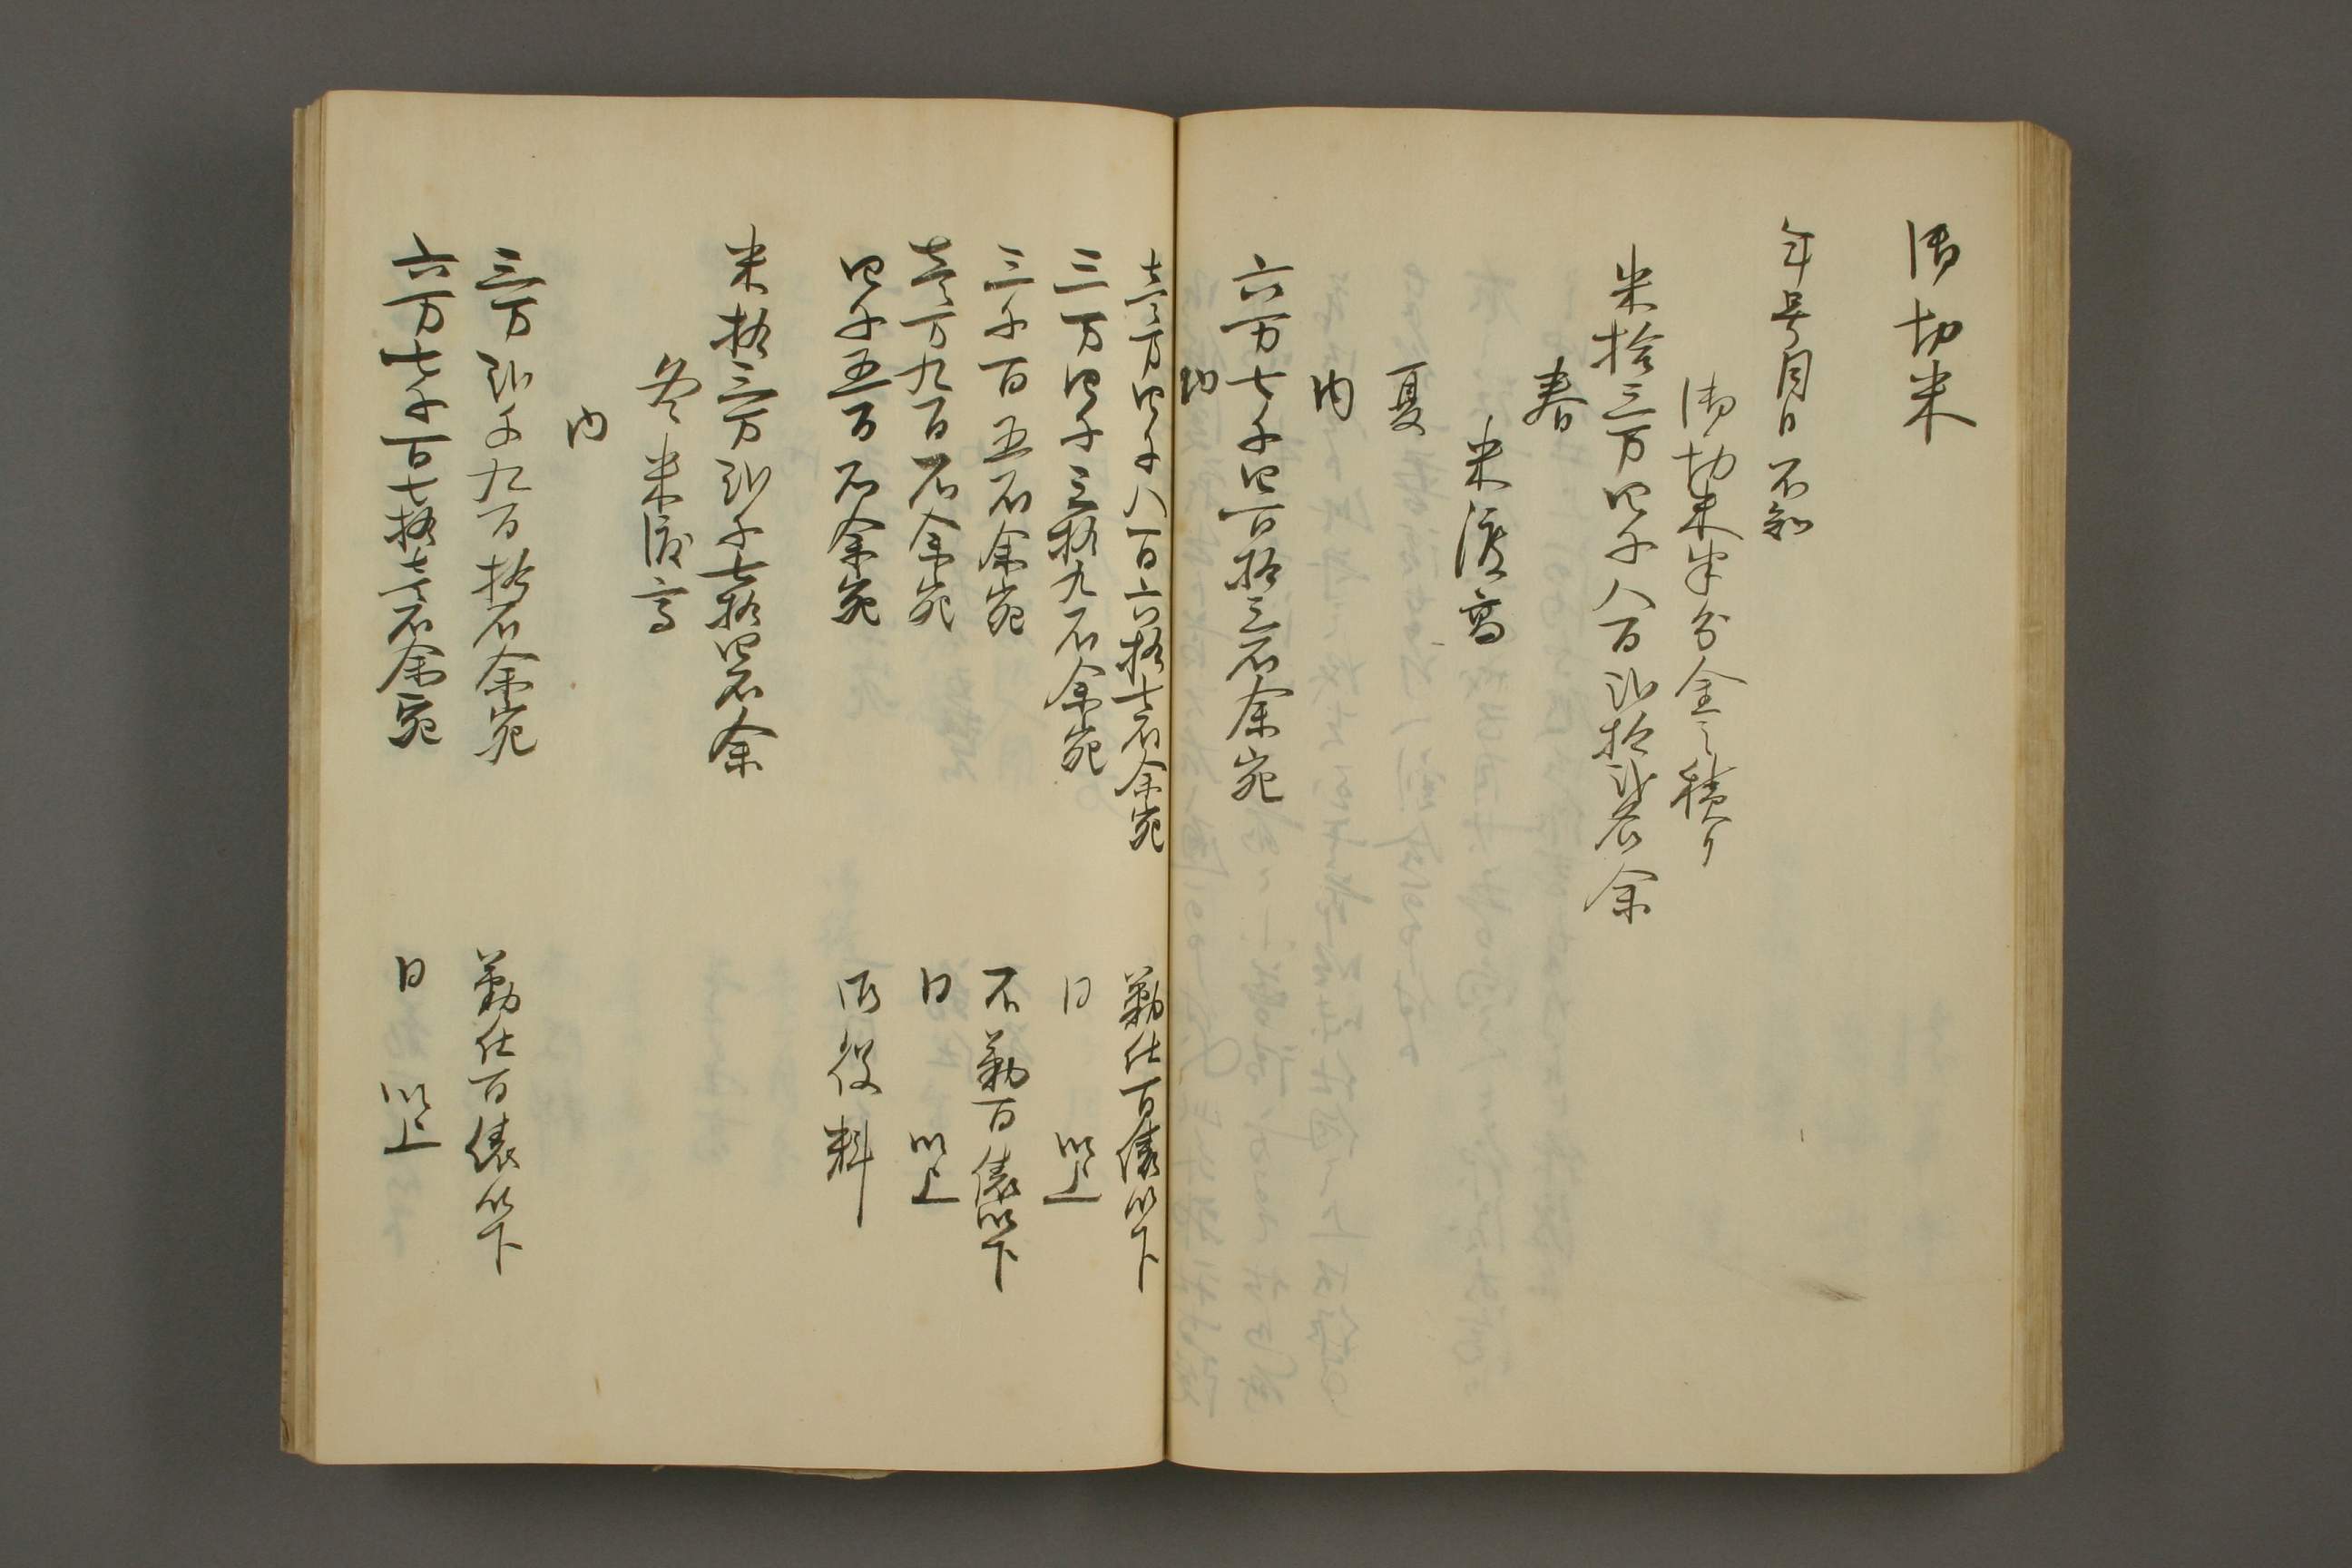 御切米
年号月日不知
御切米半分金之積り
米拾三万四千八百弐拾弐石余
春
米渡高
夏
内
六万七千四百拾三石余宛
内
壱万四千八百六拾七石余宛 勤仕百俵以下
三万四千三拾九石余宛 同 以上
三千百五石余宛 不勤百俵以下
壱万九百石余宛 同 以上
四千五百石余宛 御役料
米拾三万弐千七拾四石余
冬米渡高
内
三万弐千九百拾石余宛 勤仕百俵以下
六万七千百七拾七石余宛 同 以上